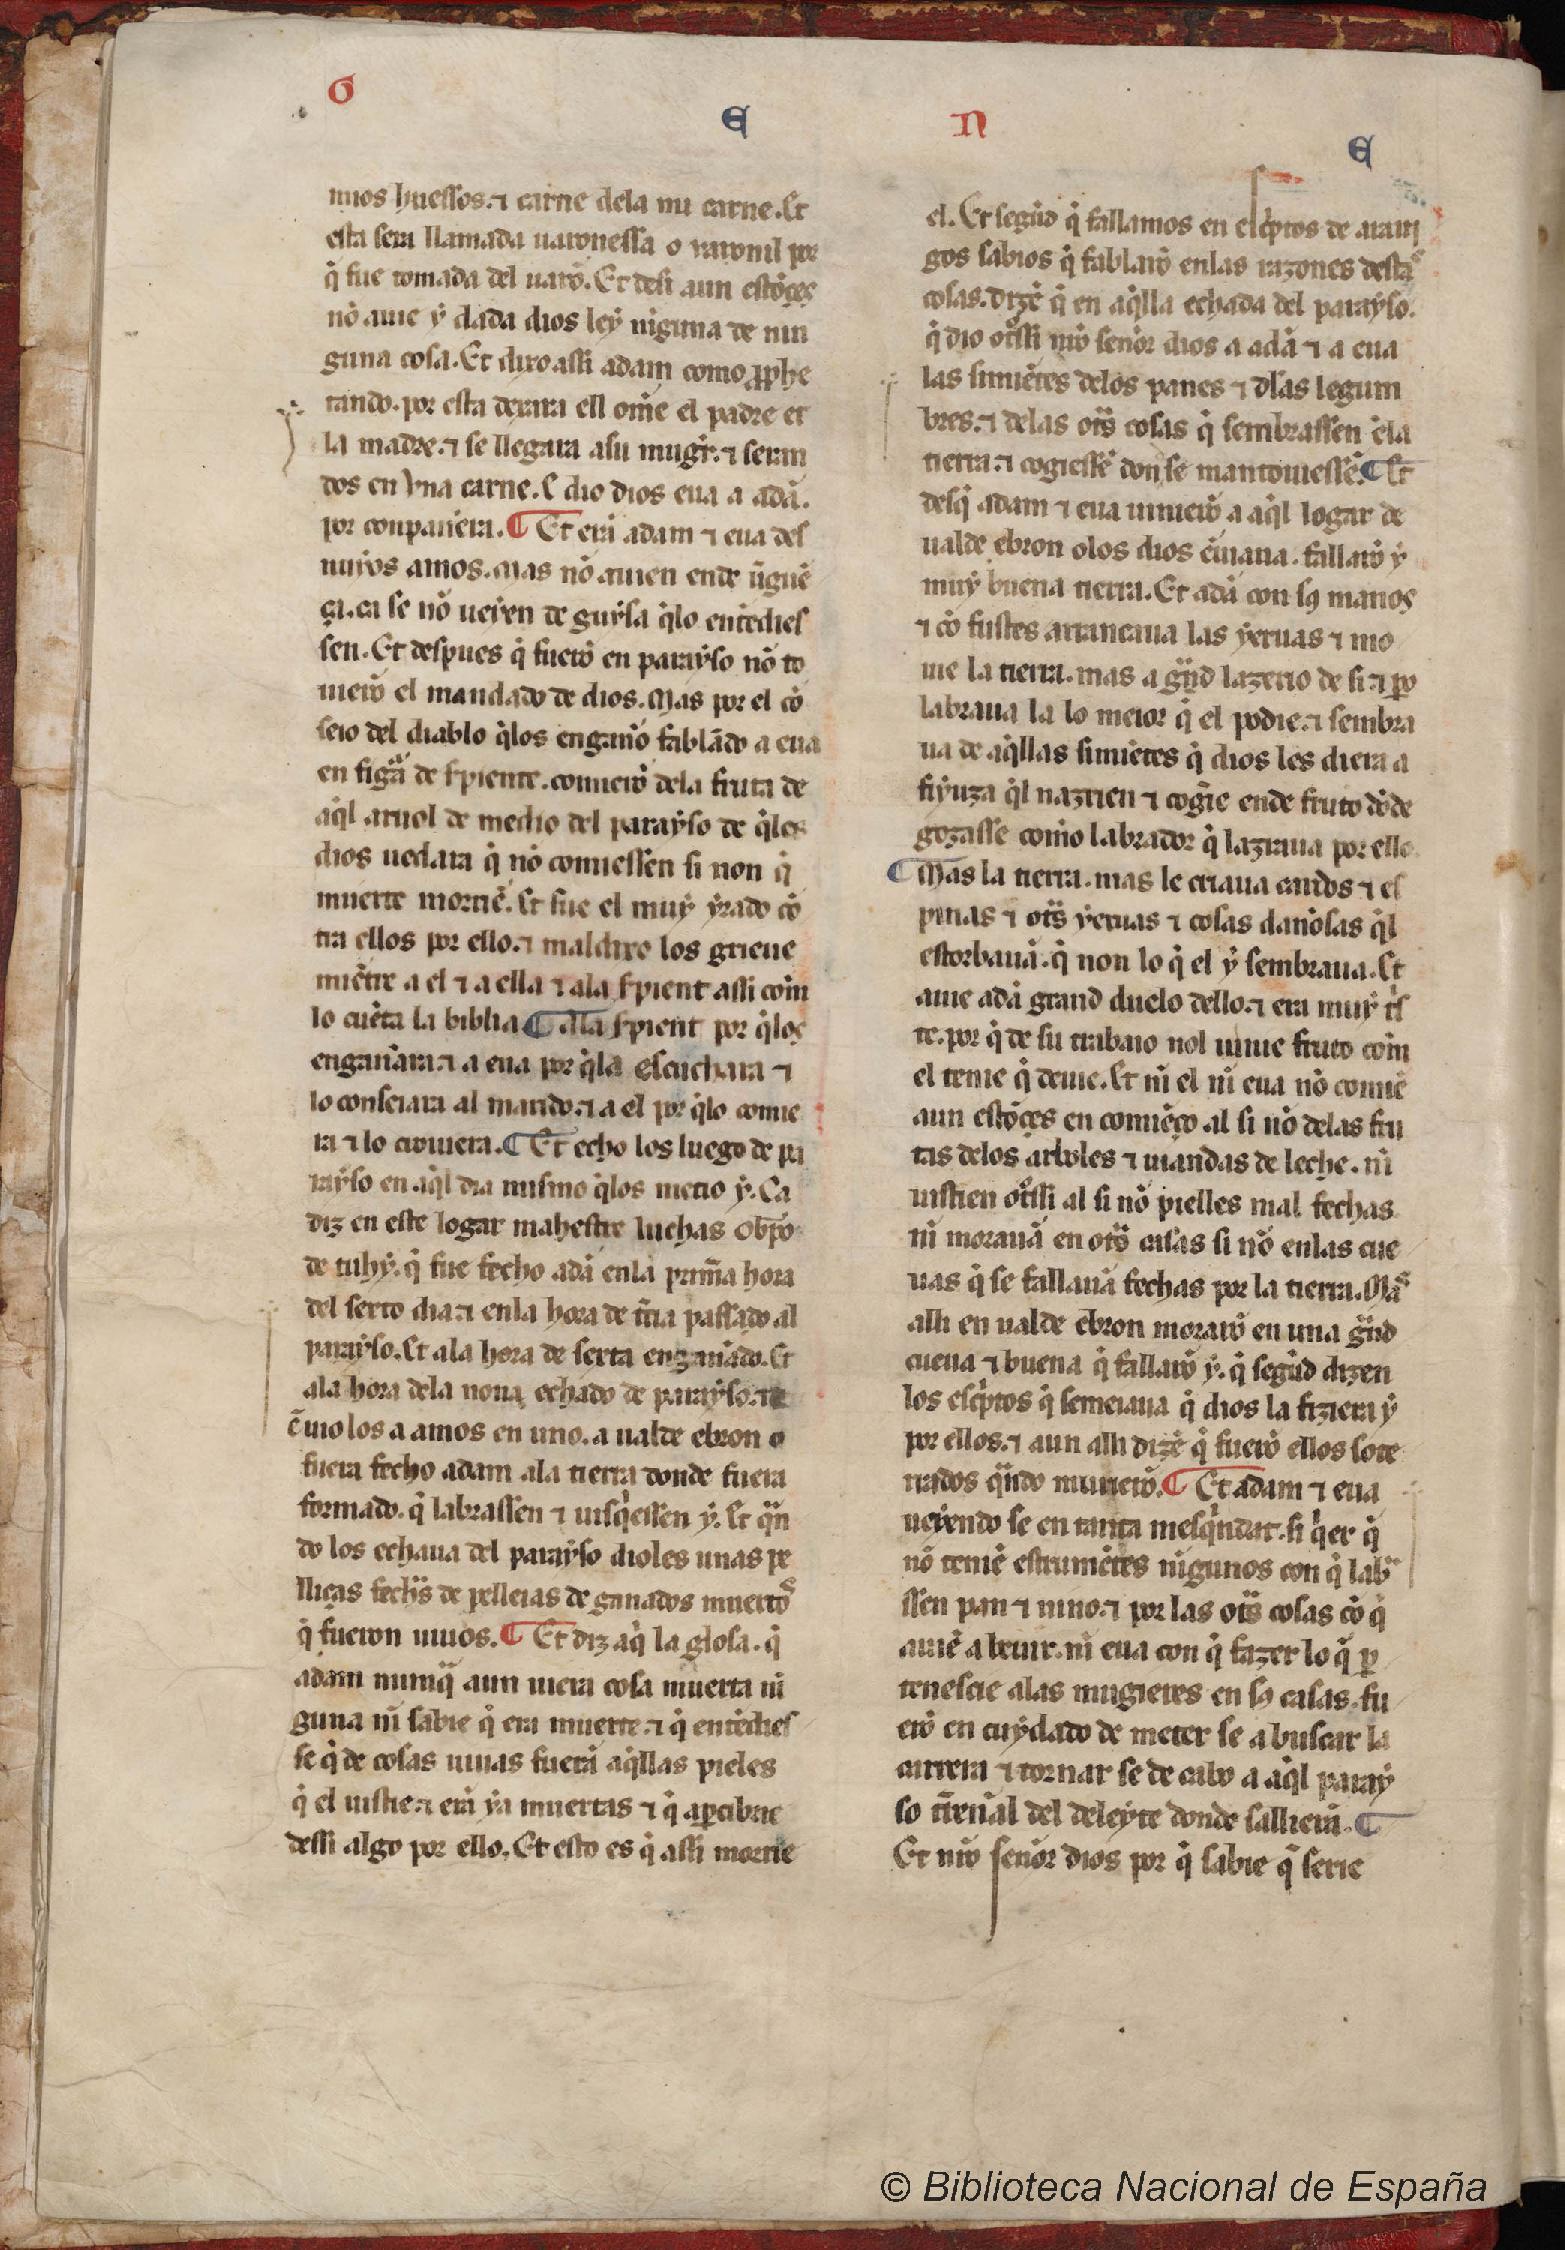 G E N E
mios huessos. ⁊ carne dela mi carne. Et
esta sera llamada uaronessa o uaronil por
q̉ fue tomada del uarõ. Et desi aun estõçes
nõ auie ẏ dada dios leẏ nĩguna de nin
guna cosa. Et dixo assi adam como ꝓphe
tando. por esta dexara ell om̃e el padre et
la madre. ⁊ se llegara asu mugr̃. ⁊ seran
dos en vna carne. E dio dios eua a adã.
por conpanera. ¶ Et erã adam ⁊ eua des
nuyos amos. Mas nõ auien ende ũguẽ
ça. ca se nõ ueẏen de guẏsa q̉lo entẽdies
sen. Et despues q̉ fuerõ en paraẏso nõ to
uierõ el mandado de dios. Mas por el cõ
seio del diablo q̉los enganõ fablãdo a eua
en figᷓa de ſpiente. comierõ dela fruta de
aq̉l aruol de medio del paraẏso de q̉les
dios uedara q̉ nõ comiessen si non q̉
muerte morriẽ. Et fue el muẏ ẏrado cõ
tra ellos por ello. ⁊ maldixo los grieue
miẽtre a el ⁊ a ella ⁊ ala ſpient assi com̃
lo cuẽta la biblia ¶ Ala ſpient por q̉los
enganara. ⁊ a eua por q̉la escuchara ⁊
lo conseiara al marido. ⁊ a el por q̉lo comie
ra ⁊ lo crouiera. ¶ Et echo los luego de pa
raẏso en aq̉l dia mismo q̉los metio ẏ. Ca
diz en este logar mahestre luchas ob̃po
de tuhẏ. q̉ fue fecho adã enla prim̃a hora
del sexto dia. ⁊ enla hora de t̃cia passado al
paraẏso. Et ala hora de sexta enganado. Et
ala hora dela nona echado de paraẏso. ⁊
ẽuio los a amos en uno. a ualde ebron o
fuera fecho adam ala tierra donde fuera
formado. q̉ labrassen ⁊ uisq̉essen ẏ. Et qᷓn
do los echaua del paraẏso dioles unas pe
lliças fechᷓs de pelleias de ganados muertos
q̉ fueron uiuos. ¶ Et diz aq̉ la glosa. q̉
adam nunqᷓ aun uiera cosa muerta nĩ
guna nĩ sabie q̉ era muerte. ⁊ q̉ entẽdies
se q̉ de cosas uiuas fuerã aq̉llas pieles
q̉ el uistie. ⁊ erã ẏa muertas ⁊ q̉ aꝑcibrie
dessi algo por ello. Et esto es q̉ assi morrie
el. Et segũd q̉ fallamos en esc̉ptos de arauj
gos sabios q̉ fablarõ enlas razones destas
cosas. dizẽ q̉ en aq̉lla echada del paraẏso.
q̉ dio otᷤssi nr̃o senõr dios a adã ⁊ a eua
las simiẽtes delos panes ⁊ dlas legum
bres. ⁊ delas otᷓs cosas q̉ sembrassen ẽla
tierra. ⁊ cogiessẽ don se mantouiessẽ. ¶ Et
desq̉ adam ⁊ eua uinierõ a aq̉l logar de
ualde ebron olos dios ẽuiaua. fallarõ ẏ
muẏ buena tierra. Et adã con sꝰ manos
⁊ cõ fustes arrancaua las ẏeruas ⁊ mo
uie la tierra. mas a gᷓnd lazerio de si. ⁊ ꝑo
labraua la lo meior q̉ el podie. ⁊ sembra
ua de aq̉llas simiẽtes q̉ dios les diera a
fiẏuza q̉l nazrien ⁊ cogr̃ie ende fruto dõde
gozasse com̃o labrador q̉ lazraua por ello.
¶ Mas la tierra. mas le criaua cardos ⁊ es
pinas ⁊ otᷓs ẏeruas ⁊ cosas danosas q̉l
estorbauã. q̉ non lo q̉ el ẏ sembraua. Et
auie adã grand duelo dello. ⁊ era muẏ t̉s
te. por q̉ de su trabaio nol uinie fruto com̃
el tenie q̉ deuie. Et nĩ el nĩ eua nõ comiẽ
aun estõçes en comiẽço al si nõ delas fru
tas delos arboles ⁊ uiandas de leche. nĩ
uistien otᷤssi al si nõ pielles mal fechas.
nĩ morauã en otᷓs casas si nõ enlas cue
uas q̉ se fallauã fechas por la tierra. Mas
alli en ualde ebron morarõ en una gᷓnd
cueua ⁊ buena q̉ fallarõ ẏ. q̉ segũd dizen
los esc̉ptos q̉ semeiaua q̉ dios la fiziera ẏ
por ellos. ⁊ aun alli dizẽ q̉ fuerõ ellos sote
rrados qᷓndo murierõ. ¶ Et adam ⁊ eua
ueẏendo se en tanta mesq̉ndat. si q̉er q̉
nõ teniẽ estrumẽtes nĩgunos con q̉ labᷓ
ssen pan ⁊ uino. ⁊ por las otᷓs cosas cõ q̉
auiẽ a beuir. nĩ eua con q̉ fazer lo q̉ ꝑ
tenescie alas mugieres en sꝰ casas. fu
erõ en cuẏdado de meter se a buscar la
carrera ⁊ tornar se de cabo a aq̉l paraẏ
so t̃renal del deleẏte donde sallierã. ¶
Et nr̃o senõr dios por q̉ sabie q̉ serie
© Biblioteca Nacional de España